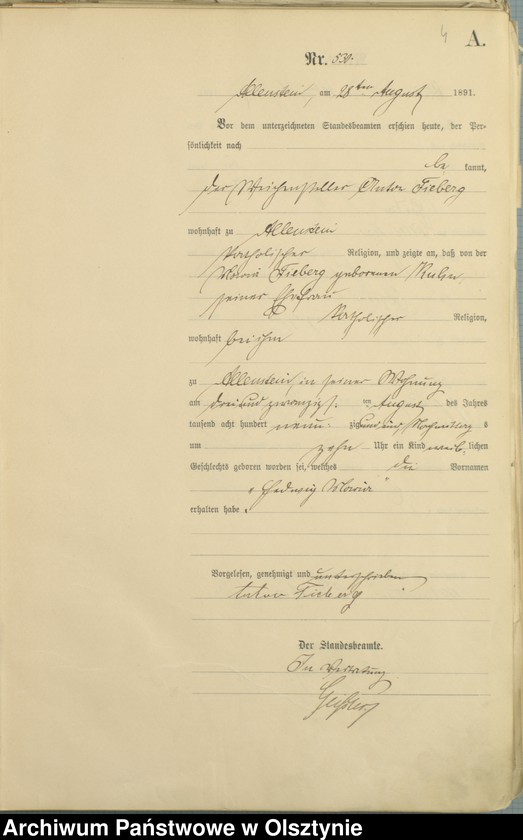 4
A.
Nr. 530.
Allenstein, am 28ten August 1891.
Vor dem unterzeichneten Standesbeamten erschien heute, der Per-
sönlichkeit nach
be kannt,
der Weichensteller Anton Fieberg
wohnhaft zu Allenstein
katholischer Religion, und zeigte an, daß von der
Maria Fieberg geborenen Kuhn
seiner Ehefrau
katholischer Religion,
wohnhaft bei ihm
zu Allenstein in seiner Wohnung
am drei und zwanzigst. ten August des Jahres
tausend acht hundert neun- zig und eins Nachmittag s
um zehn Uhr ein Kind weib lichen
Geschlechts geboren worden sei, welches die Vornamen
„Hedwig Maria“
erhalten habe.
Vorgelesen, genehmigt und unterschrieben
Anton Fieberg
Der Standesbeamte.
In Vertretung
Archiwum Państwowe w Olsztynie